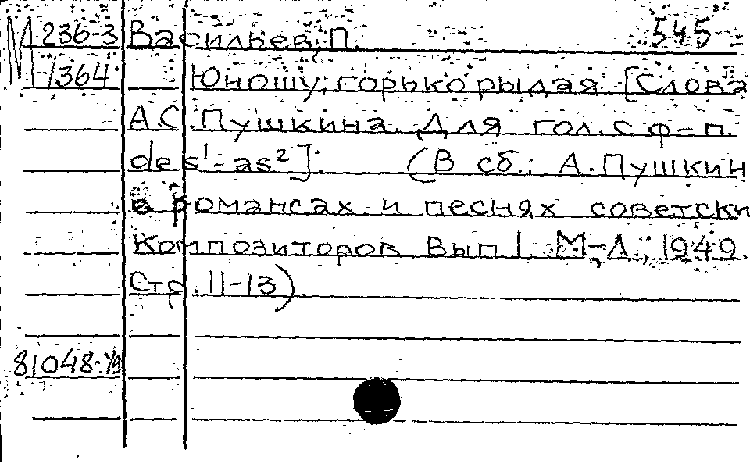 М 236-3 Васильев, П. 545
1364 Юношу, горько рыдая [Слова
А.С. Пушкина. Для гол. с ф-п.
des¹-as²]. (В сб.: А. Пушкин
в романсах и песнях советски
композиторов Вып 1. М-Л., 1949.
Стр. 11-13).
81048-